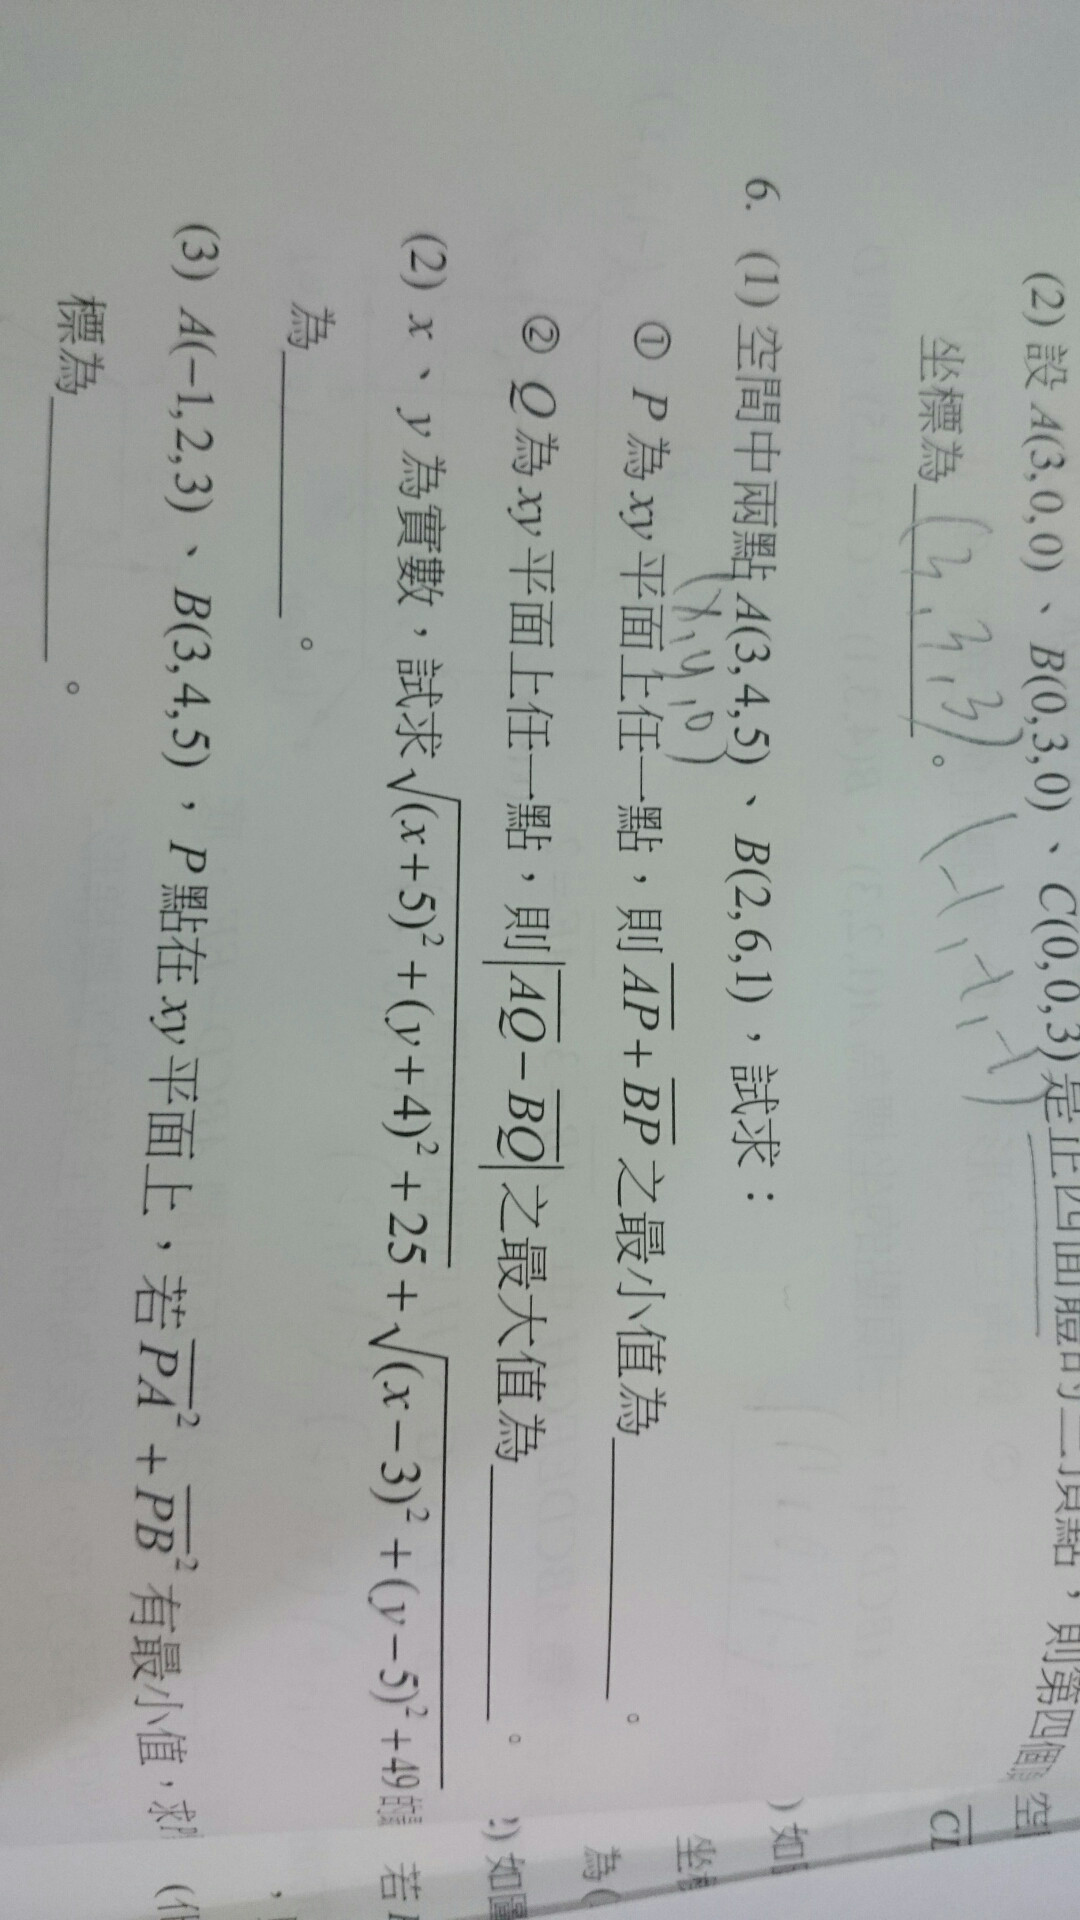 (2) 設 A(3,0,0)、B(0,3,0)、C(0,0,3)是正四面體的三頂點，則第四個
坐標為(3,3,3)。(-1,-1,-1)
6. (1) 空間中兩點 A(3,4,5)、B(2,6,1)，試求：
(x,y,0)
① P 為 xy 平面上任一點，則 AP + BP 之最小值為＿＿＿＿。
② Q 為 xy 平面上任一點，則|AQ − BQ|之最大值為＿＿＿＿。
(2) x、y 為實數，試求 √(x+5)²+(y+4)²+25 + √(x−3)²+(y−5)²+49 的
為＿＿＿＿。
(3) A(−1,2,3)、B(3,4,5)，P 點在 xy 平面上，若 PA² + PB² 有最小值，求
標為＿＿＿＿。
空
CL
) 如
坐
為(
) 如圖
若
(